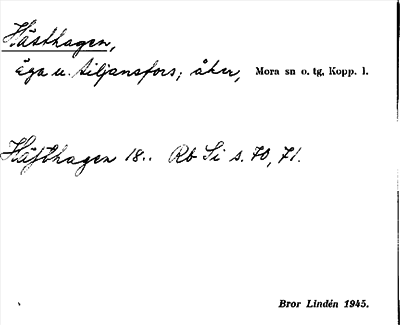 Hästhagen,
äga u. Siljansfors; åker, Mora sn o. tg, Kopp. l.
Häſthagen 18.. Rb Si s. 70, 71.
Bror Lindén 1945.